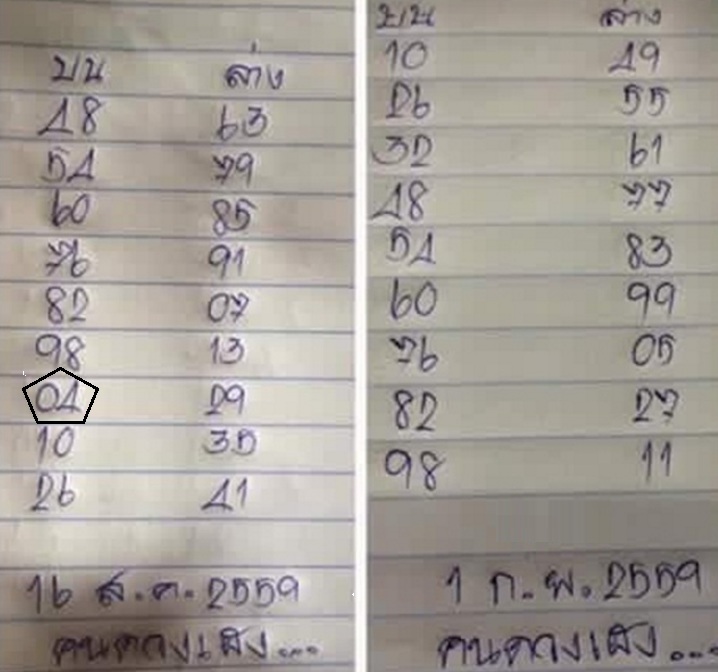 บน ล่าง
48 63
54 79
60 85
76 91
82 07
98 13
04 29
10 35
26 41
16 ส.ค. 2559
คนดวงเฮง...
บน ล่าง
10 49
26 55
32 61
48 77
54 83
60 99
76 05
82 27
98 11
1 ก.พ. 2559
คนดวงเฮง...